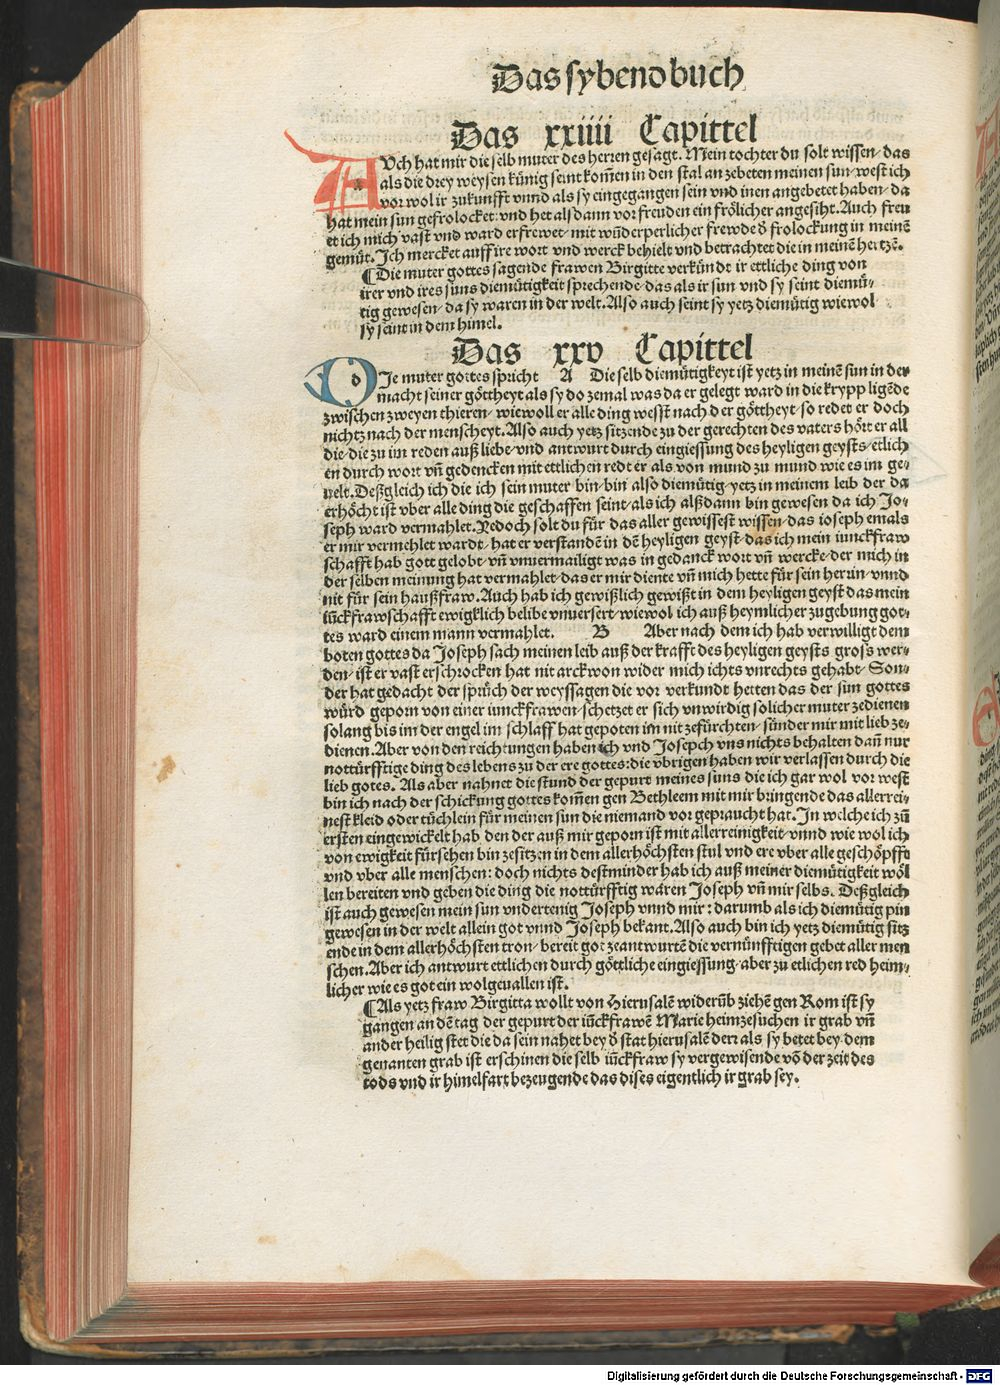 Das sybend buch
Das xxiiii Capittel
AVch hat mir die selb muter des herren gesagt. Mein tochter du solt wissen/ das
als die drey weysen künig seint kom̄en in den stal an zebeten meinen sun/ west ich
vor wol ir zukunfft vnnd als sy eingegangen sein vnd inen angebetet haben/ da
hat mein sun gefrolocket: vnd het alsdann vor freuden ein frölicher angesiht. Auch freu
et ich mich vast vnd ward erfrewet/ mit wūderperlicher frewde d̄ frolockung in meinē
gemüt. Ich mercket auff ire wort vnd werck behielt vnd betrachtet die in meinē hertzē.
¶ Die muter gottes sagende frawen Birgitte verkündt ir ettliche ding von
irer vnd ires suns diemütigkeit sprechende/ das als ir sun vnd sy seint diemü⸗
tig gewesen/ da sy waren in der welt. Also auch seint sy yetz diemütig wiewol
sy seint in dem himel.
Das xxv Capittel
DIe muter gottes spricht A Die selb diemütigkeyt ist yetz in meinē sun in der
macht seiner göttheyt als sy do zemal was da er gelegt ward in die krypp ligēde
zwischen zweyen thieren/ wiewoll er alle ding wesst nach der göttheyt/ so redet er doch
nichtz nach der menscheyt. Also auch yetz sitzende zu der gerechten des vaters hört er all
die/ die zu im reden auß liebe/ vnd antwurt durch eingiessung des heyligen geysts/ etlich
en durch wort vn̄ gedencken mit ettlichen redt er als von mund zu mund wie es im ge⸗
uelt. Deßgleich ich die ich sein muter bin/ bin also diemütig/ yetz in meinem leib der da
erhöcht ist vber alle ding die geschaffen seint/ als ich alßdann bin gewesen da ich Jo⸗
seph ward vermahlet. Yedoch solt du für das aller gewissest wissen/ das ioseph emals
er mir vermehlet wardt/ hat er verstandē in dē heyligen geyst/ das ich mein iunckfraw
schafft hab gott gelobt/ vn̄ vnuermailigt was in gedanck wort vn̄ wercke/ der mich in
der selben meinung hat vermahlet/ das er mir diente vn̄ mich hette für sein herrin/ vnnd
nit für sein haußfraw. Auch hab ich gewißlich gewißt in dem heyligen geyst das mein
iūckfrawschafft ewigklich belibe vnuersert/ wiewol ich auß heymlicher zugebung got⸗
tes ward einem mann vermahlet. B Aber nach dem ich hab verwilligt dem
boten gottes da Joseph sach meinen leib auß der krafft des heyligen geysts gross wer⸗
den/ ist er vast erschrocken hat nit arckwon wider mich ichts vnrechts gehabt/ Son⸗
der hat gedacht der sprüch der weyssagen die vor verkundt hetten das der sun gottes
würd geporn von einer iunckfrawen/ schetzet er sich vnwirdig solicher muter zedienen
solang bis im der engel im schlaff hat gepoten im nit zefürchten/ sünder mir mit lieb ze⸗
dienen. Aber von den reichtungen haben ich vnd Josepch vns nichts behalten dan̄ nur
nottürfftige ding des lebens zu der ere gottes: die vbrigen haben wir verlassen durch die
lieb gotes. Als aber nahnet die stund der gepurt meines suns die ich gar wol vor west
bin ich nach der schickung gottes kom̄en gen Bethleem mit mir bringende das allerrei⸗
nest kleid oder tüchlein für meinen sun die niemand vor gepraucht hat. In welche ich zū
ersten eingewickelt hab den der auß mir geporn ist mit aller reinigkeit/ vnnd wie wol ich
von ewigkeit fürsehen bin zesitzen in dem allerhöchsten stul vnd ere vber alle geschöpffe
vnd vber alle menschen: doch nichts destminder hab ich auß meiner diemütigkeit wöl
len bereiten vnd geben die ding die nottürfftig waren Joseph vn̄ mir selbs. Deßgleich
ist auch gewesen mein sun vndertenig Joseph vnnd mir: darumb als ich diemütig pin
gewesen in der welt allein got vnnd Joseph bekant. Also auch bin ich yetz diemütig sitz
ende in dem allerhöchsten tron/ bereit got zeantwurtē die vernünfftigen gebet aller men
schen. Aber ich antwurt ettlichen durch göttliche eingiessung/ aber zu etlichen red heim⸗
licher wie es got ein wolgeuallen ist.
¶ Als yetz fraw Birgitta wollt von Hierusalē widerūb ziehē gen Rom ist sy
gangen an dē tag der gepurt der iūckfrawē Marie heimzesuchen ir grab vn̄
ander heilig stet die da sein nahet bey d̄ stat hierusalē der als sy betet bey dem
genanten grab ist erschinen die selb iūckfraw sy vergewisende vō der zeit des
tods vnd ir himelfart bezeugende das dises eigentlich ir grab sey.
Digitalisierung gefördert durch die Deutsche Forschungsgemeinschaft - DFG